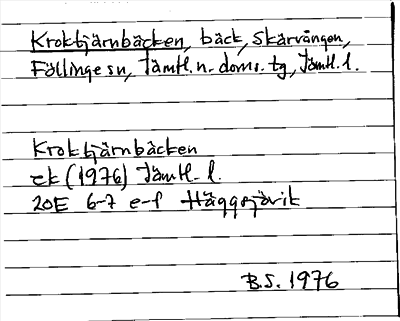 Kroktjärnbäcken, bäck, Skärvången,
Föllinge sn, Jämtl. n. doms. tg, Jämtl. l.
Kroktjärnbäcken
ek (1976) Jämtl. l.
20E 6-7 e-f Häggsjövik
B.S. 1976